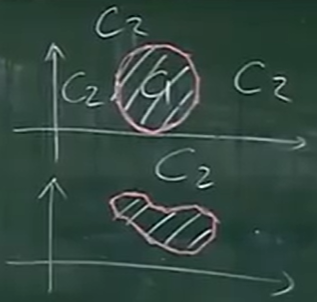 C2
C2 C1 C2
C2